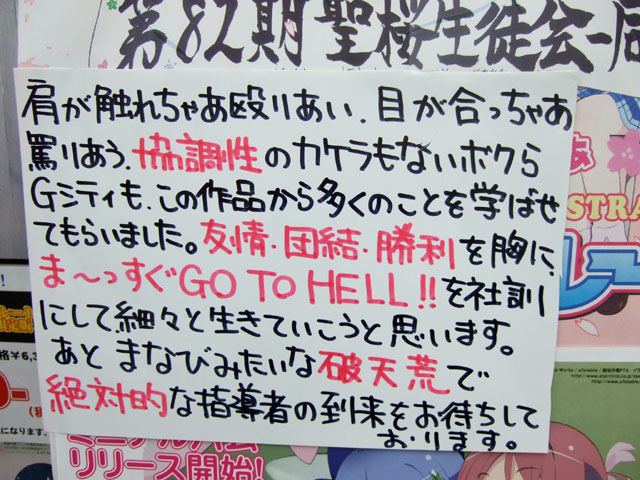 第82期 聖桜生徒会一同
肩が触れちゃあ殴りあい、目が合っちゃあ
罵りあう、協調性のカケラもないボクら
Gシティも、この作品から多くのことを学ばせ
てもらいました。友情・団結・勝利を胸に、
ま〜っすぐGO TO HELL!!を社訓
にして細々と生きていこうと思います。
あと まなびみたいな破天荒で
絶対的な指導者の到来をお待ちして
おります。
STRA
格￥6,3
になります
リリース開始!